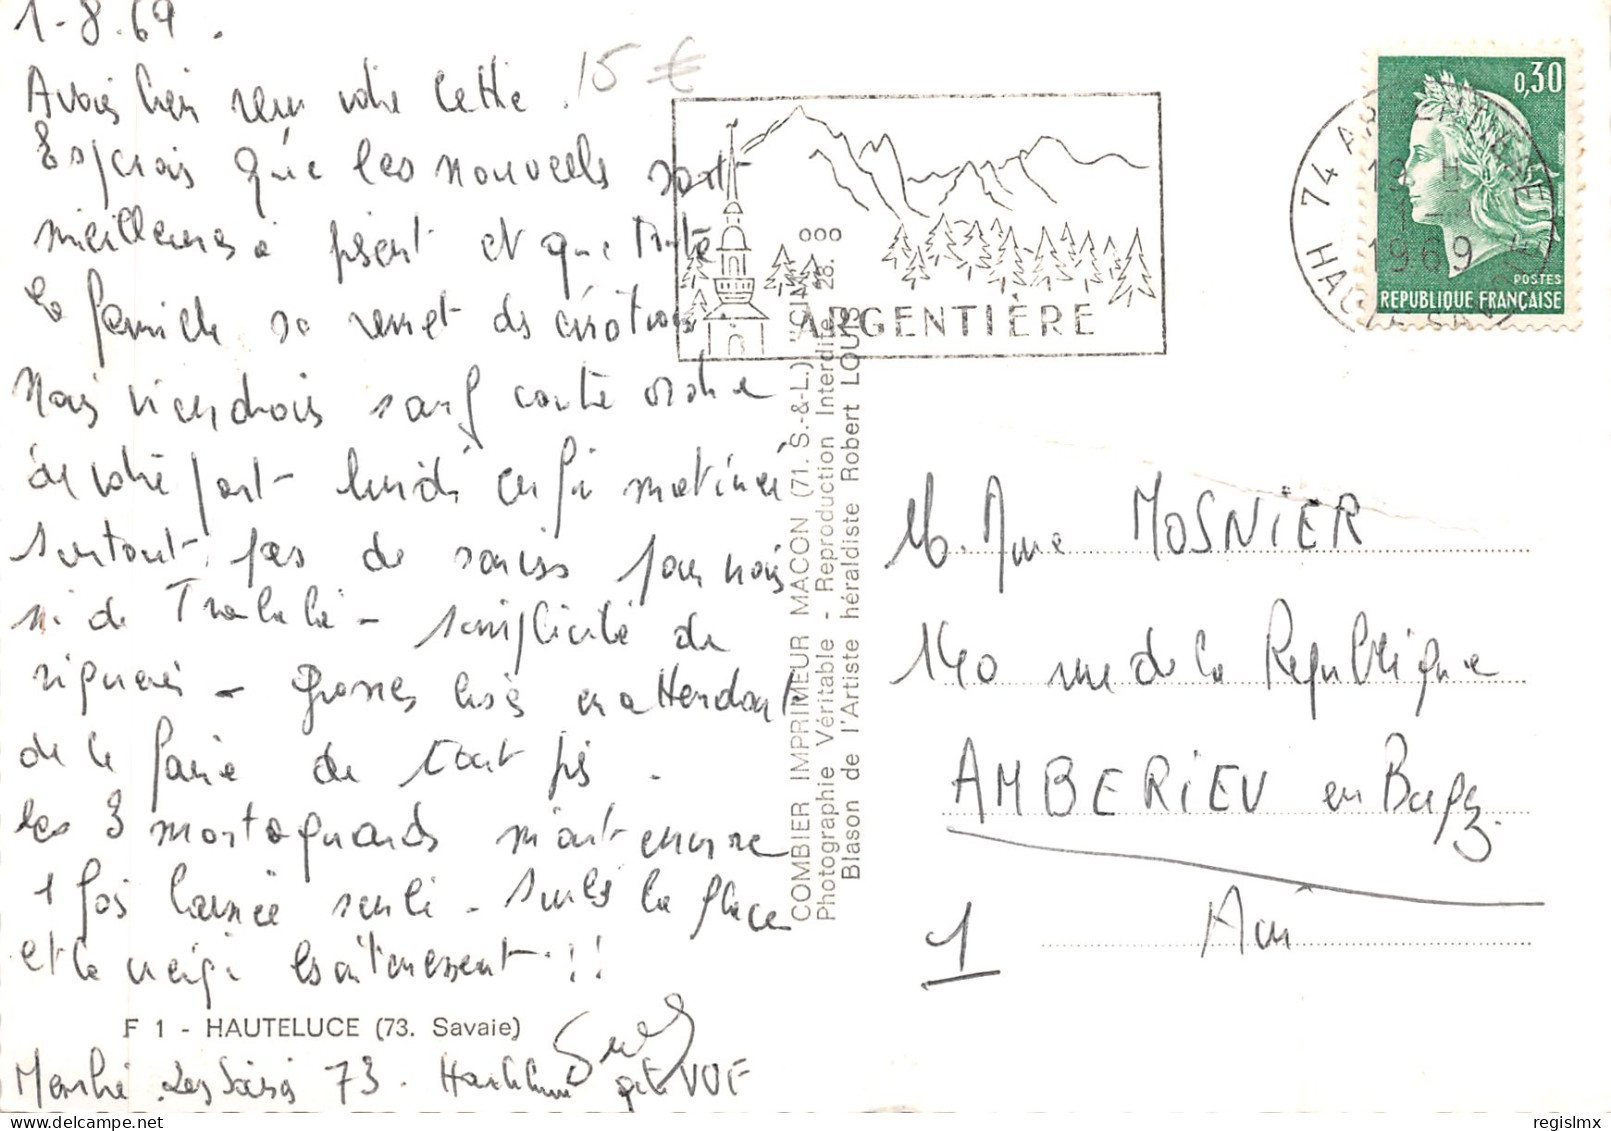 1-8.69.
Avons bien reçu votre lettre.
15 €
Espérais que les nouvelles sont
meilleures à présent et que toute
la famille se remet des émotions
Nous viendrons sauf contre ordre
de votre part lundi en fin matinée
surtout pas de soucis pour nous
ni de Tralala - simplicité de
rigueur - grosses bises en attendant
de la faire de tout près.
Les 3 montagnards m'ont encore
1 fois laissée seule - seuls la glace
et la neige les intéressent !!
F 1 - HAUTELUCE (73. Savoie)
Les Saisies 73. Hauteluce
COMBIER IMPRIMEUR MACON (71. S.-&-L.) "CIM"
Photographie Véritable - Reproduction Interdite
Blason de l'Artiste héraldiste Robert LOUIS
28.
ARGENTIÈRE
74 ARGENTIERE
19 H
1-
1969
HAUTE SAVOIE
0,30
POSTES
REPUBLIQUE FRANÇAISE
M. Mme MOSNIER
140 rue de la République
AMBERIEU en Bugey
1 Ain
regislmx